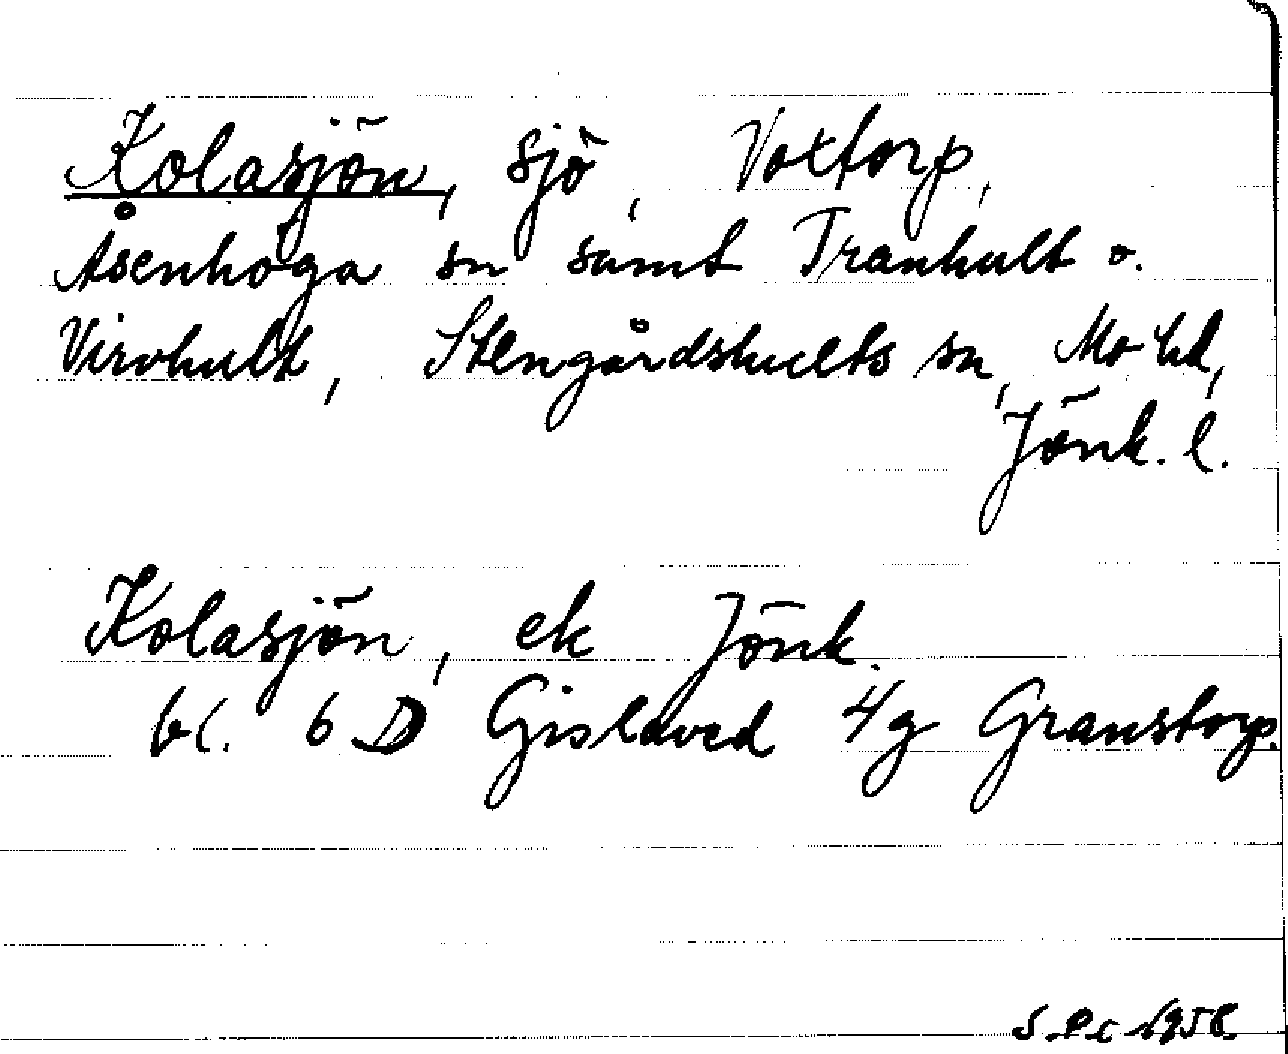 Kolasjön, sjö, Voxtorp,
Åsenhöga sn samt Tranhult o.
Virvhult, Stengårdshults sn, Mo hd,
Jönk. l.
Kolasjön, ek Jönk.
bl. 6 D Gislaved 4g Granstorp.
1958